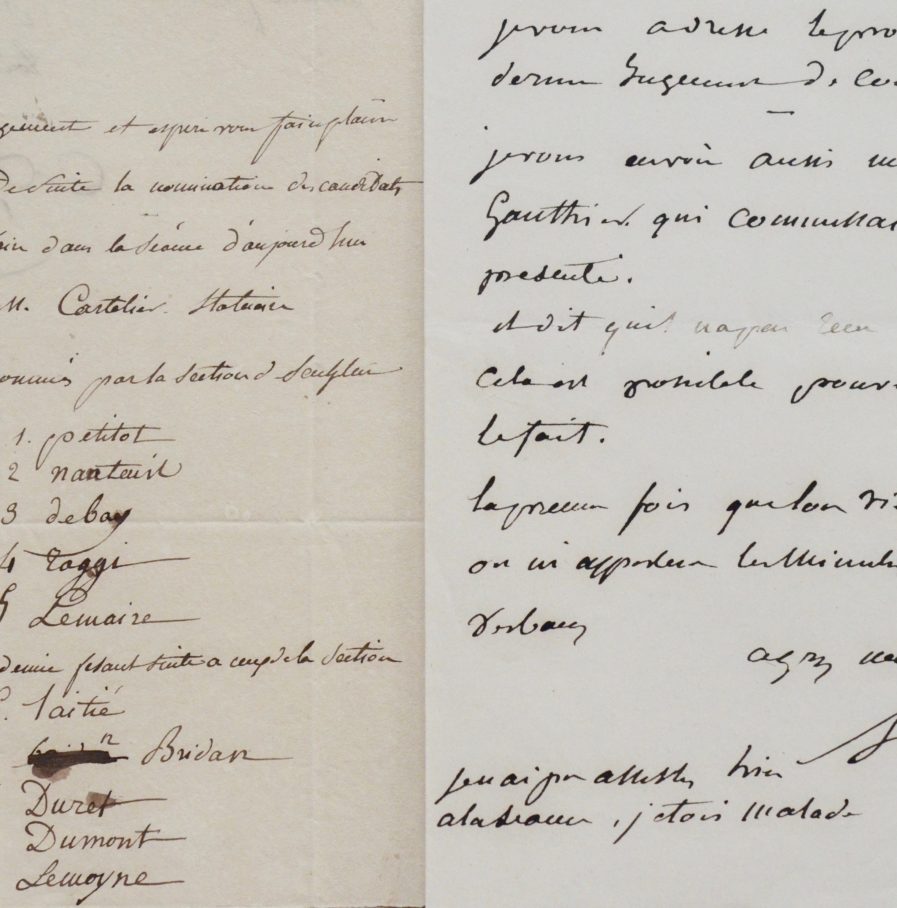 gement et espere vous faire plaisir
De suite la nomination des candidats
dans la séance d'aujourd'hui
M. Cartelier. Statuaire
par la Section d Sculpture
1. petitot
2 nanteuil
3 debay
4 raggi
5 Lemaire
demie fesant suite a ceux de la Section
laitié
Bridan
Duret
Dumont
Lemoyne
je vous adresse le pro
dernier Jugement de Co
je vous envoie aussi
Gauthier. qui
presenté.
et dit quil na pas
Cela est possible pour
le fait.
la premiere fois que lon
on m apportera les Minutes
Verbaux
agrez
je nai pu assister hier
a la seance, j'etois malade